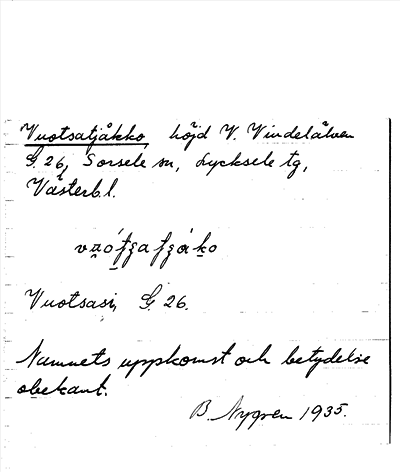 Vuotsatjåkko, höjd V. Vindelälven
G. 26, Sorsele sn, Lycksele tg,
Västerb. l.
Vuotsasi, G. 26.
Namnets uppkomst och betydelse
obekant.
B. Nygren 1935.